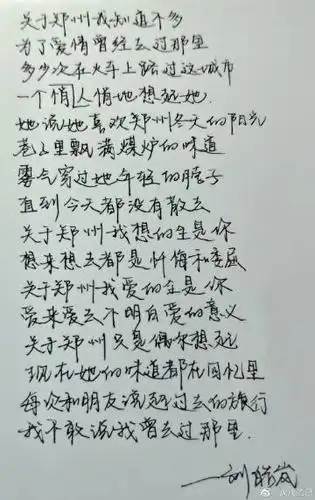 关于郑州我知道不多
为了爱情曾经去过那里
多少次在火车上路过这城市
一个人悄悄地想起她
她说她喜欢郑州冬天的阳光
巷子里飘满煤炉的味道
雾气穿过她年轻的脖子
直到今天都没有散去
关于郑州我想的全是你
想来想去都是忏悔和委屈
关于郑州我爱的全是你
爱来爱去不明白爱的意义
关于郑州只是偶尔想起
现在她的味道都在回忆里
每次和朋友说起过去的旅行
我不敢说我曾去过那里.